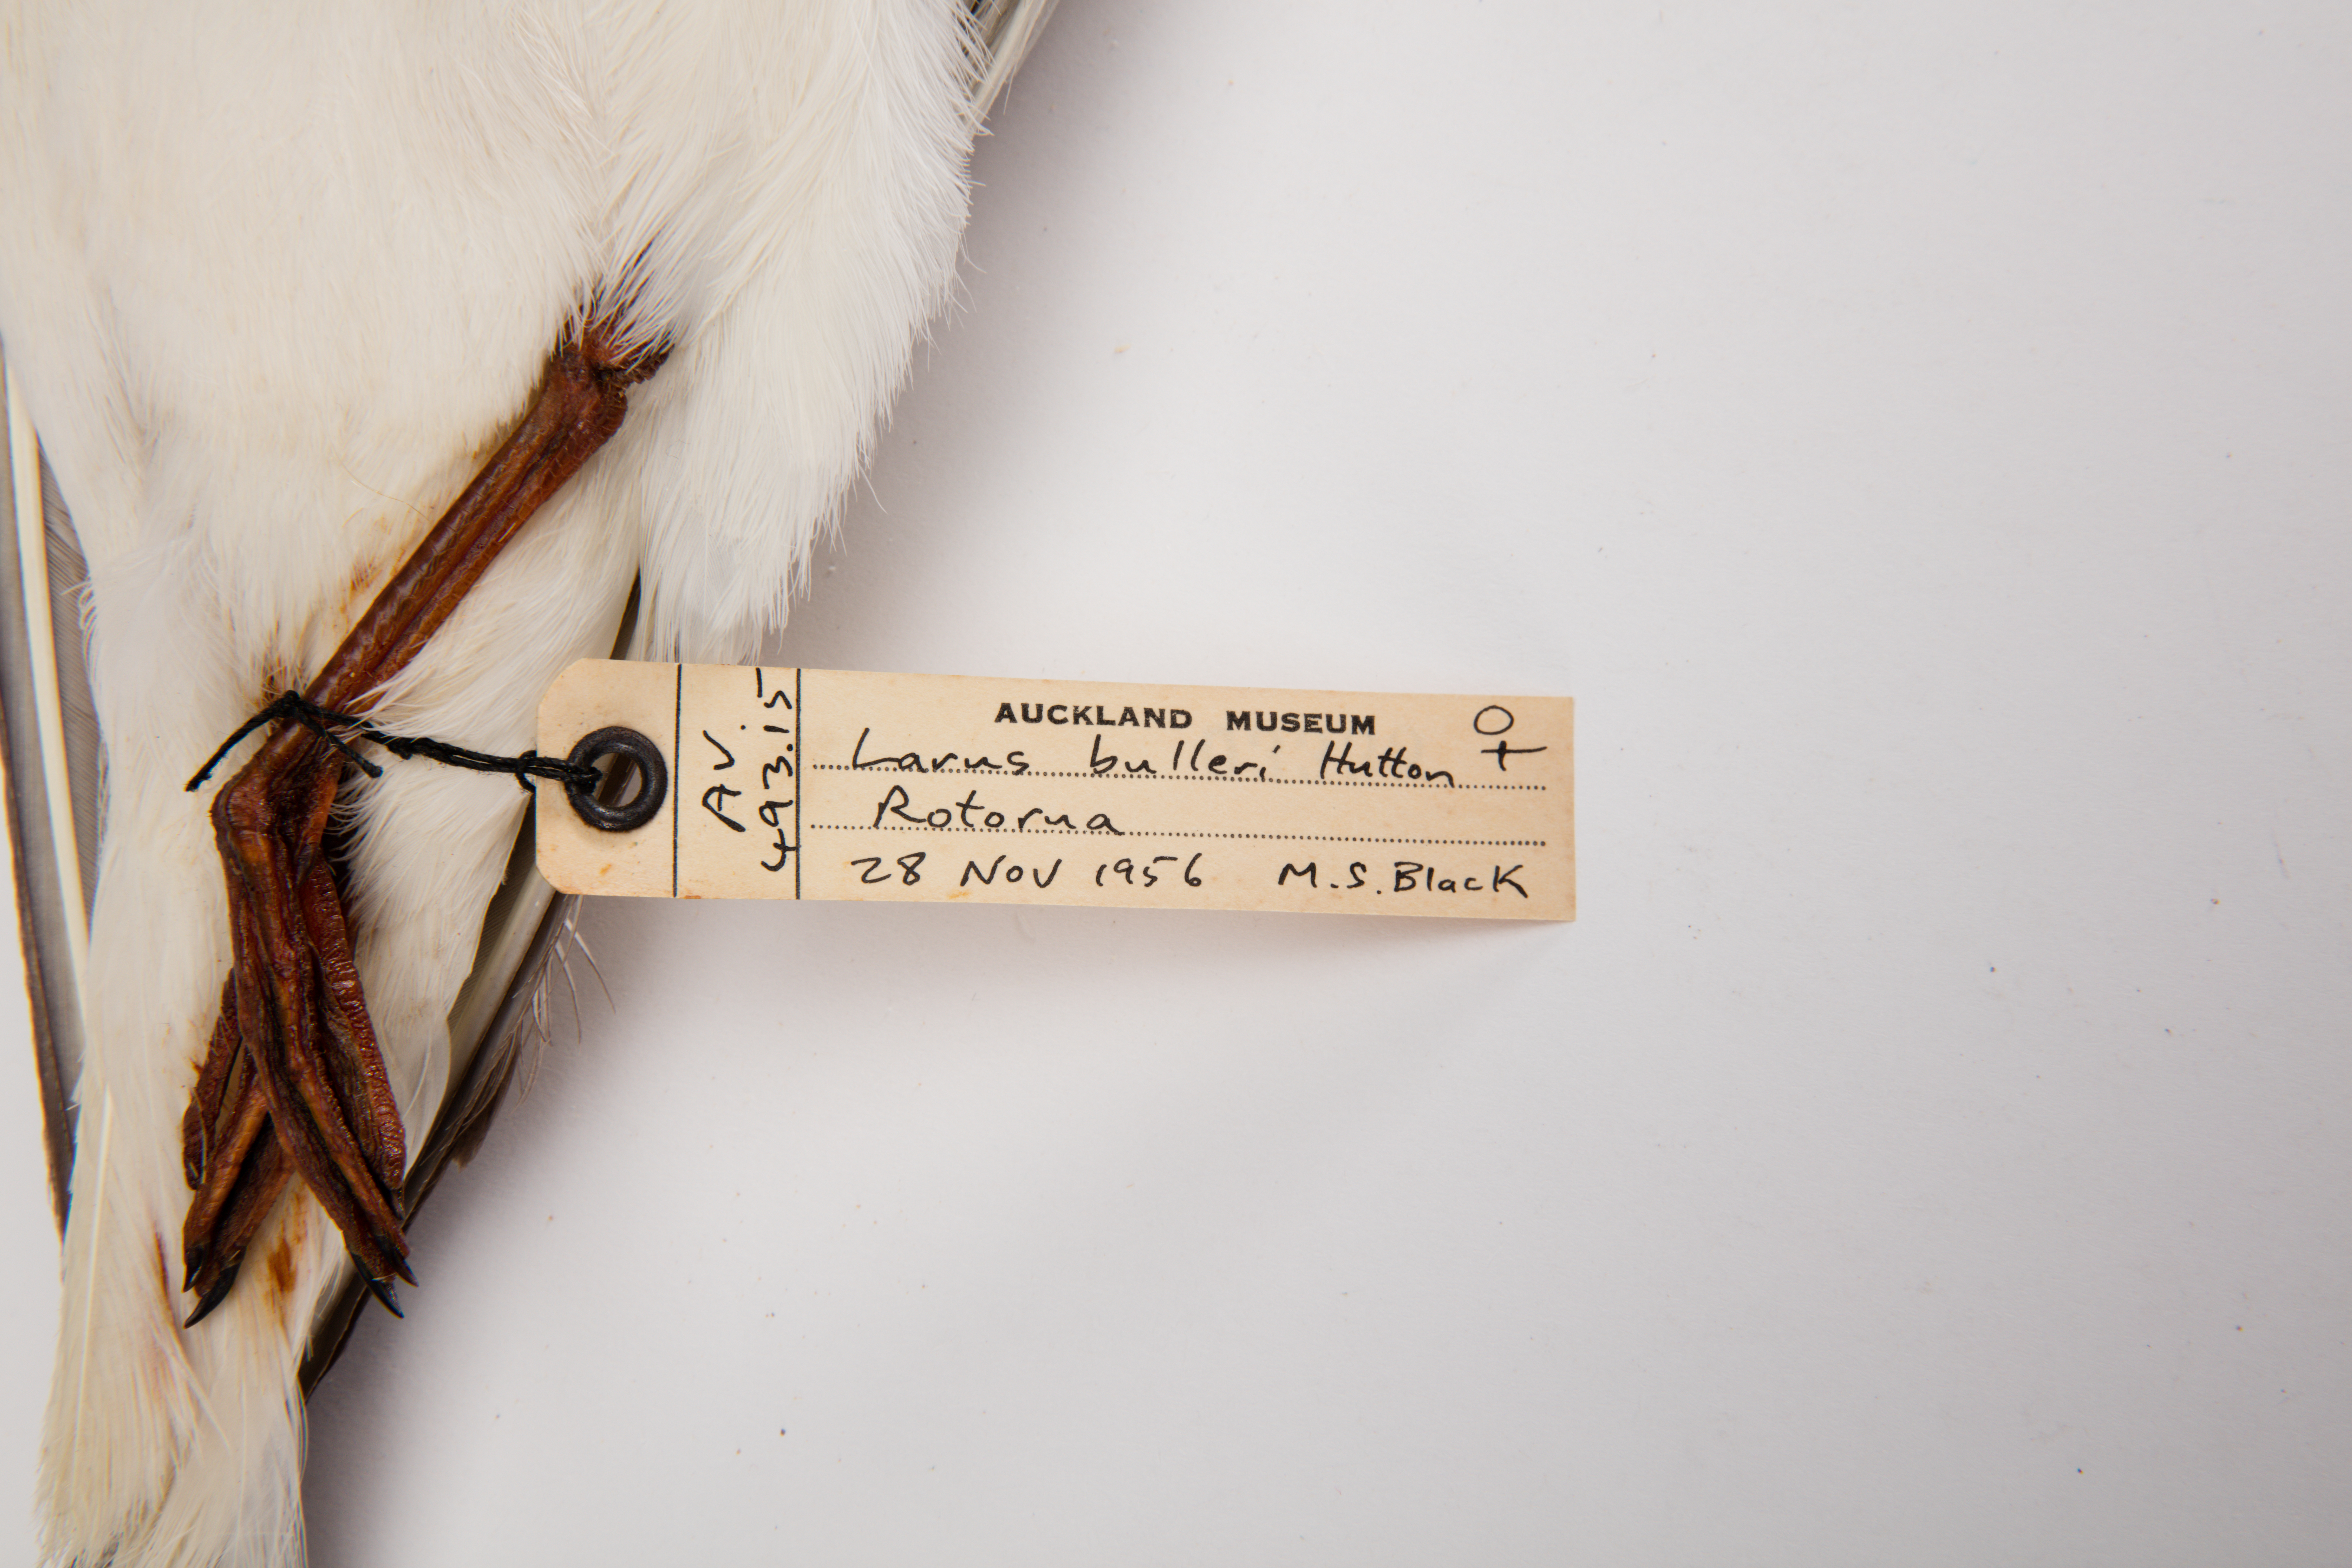 AV.
493.15
AUCKLAND MUSEUM ♀
Larus bulleri Hutton
Rotorua
28 NOV 1956 M.S.Black